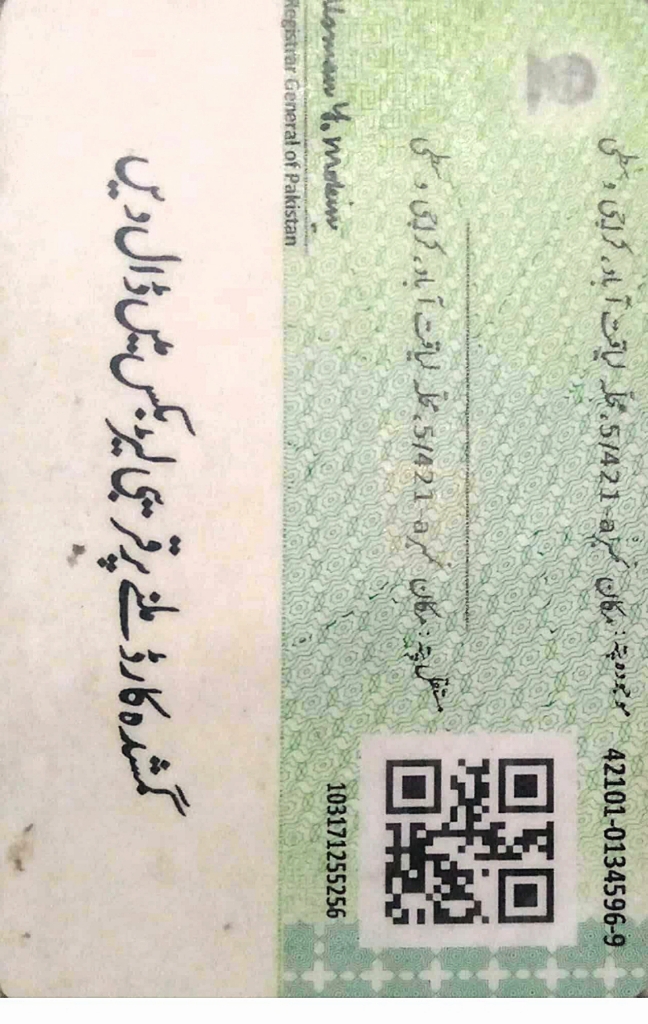 42101-0134596-9
موجودہ پتہ: مکان نمبر 5/421-a، محلہ لیاقت آباد، کراچی وسطی
مستقل پتہ: مکان نمبر 5/421-a، محلہ لیاقت آباد، کراچی وسطی
103171255256
Registrar General of Pakistan
گمشدہ کارڈ ملنے پر قریبی لیٹر بکس میں ڈال دیں